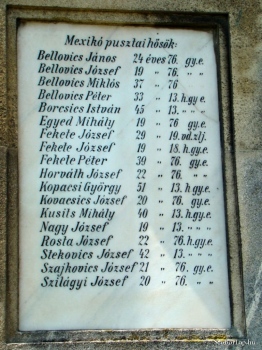 Mexikó pusztai hősök:
Bellovics János 24 éves 76. gy.e.
Bellovics József 19 „ 76. „ „
Bellovics Miklós 37 „ 76
Bellovics Péter 33 „ 13. h.gy.e.
Borcsics István 45 „ 13. „ „
Egyed Mihály 19 „ 76 gy.e.
Fekete József 29 „ 19. vd.zlj.
Fekete József 19 „ 18. h.gy.e.
Fekete Péter 39 „ 76. gy.e.
Horváth József 22 „ 76. „
Kopacsi György 51 „ 13. h.gy.e.
Kovacsics József 20 „ 76. gy.e.
Kusits Mihály 40 „ 13. h.gy.e.
Nagy József 19 „ 13. „ „
Rosta József 22 „ 76. h.gy.e.
Stekovics József 42 „ 13. „ „
Szajkovics József 21 „ 76. gy.e.
Szilágyi József 20 „ 76. „ „